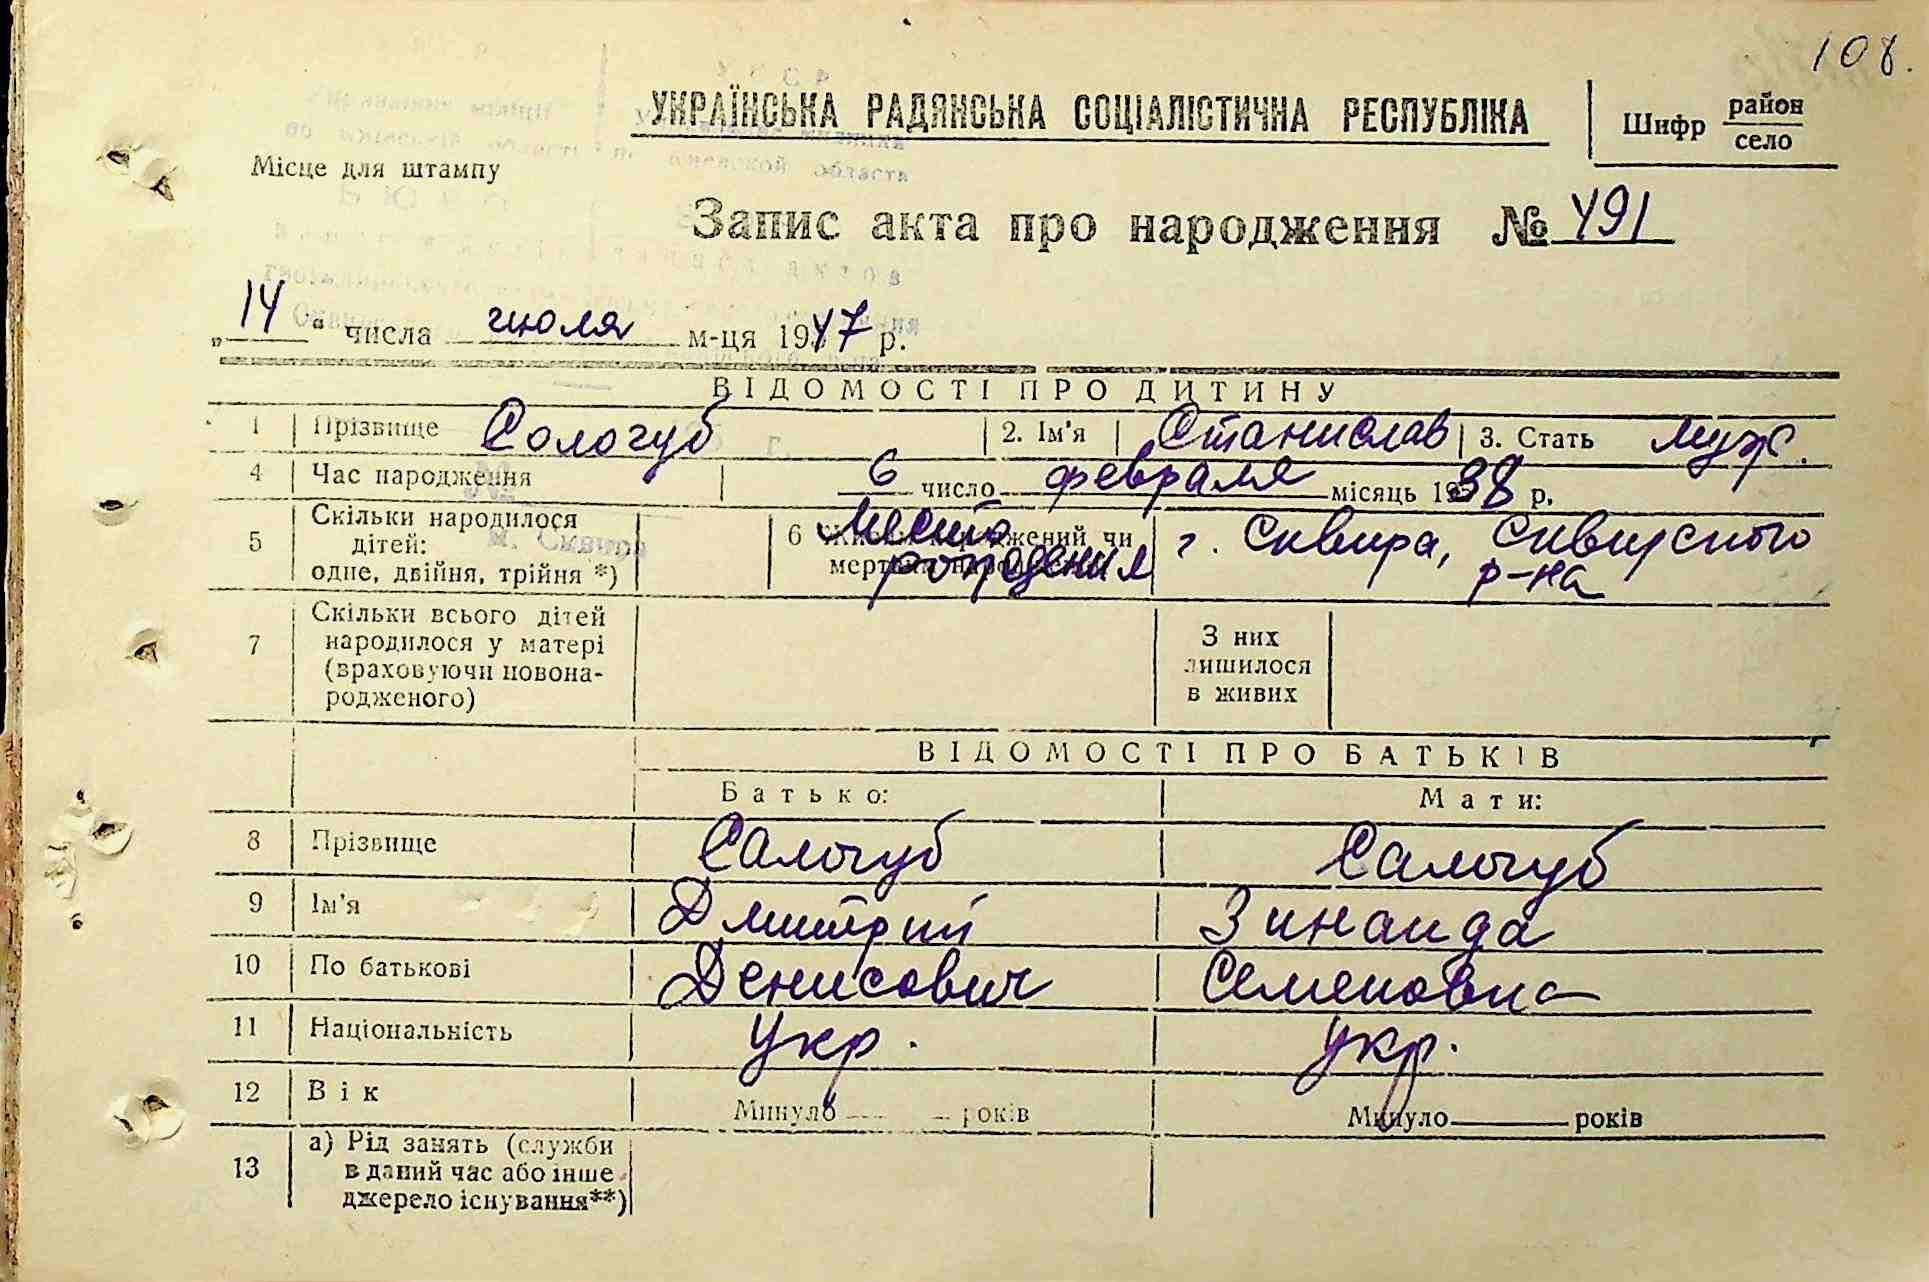 108.
УКРАЇНСЬКА РАДЯНСЬКА СОЦІАЛІСТИЧНА РЕСПУБЛІКА
Шифр район
село
Місце для штампу
Запис акта про народження № 491
„14“ числа июля м-ця 1947 р.
ВІДОМОСТІ ПРО ДИТИНУ
1 Прізвище Сологуб 2. Ім'я Станислав 3. Стать муж.
4 Час народження 6 число февраля місяць 1938 р.
5 Скільки народилося дітей: одне, двійня, трійня *) 6 Место рождения г. Сквира, Сквирского р-на
7 Скільки всього дітей народилося у матері (враховуючи новона-родженого) З них лишилося в живих
ВІДОМОСТІ ПРО БАТЬКІВ
Батько: Мати:
8 Прізвище Салогуб Салогуб
9 Ім'я Дмитрий Зинаида
10 По батькові Денисович Семеновна
11 Національність Укр. укр.
12 Вік Минуло років Минуло років
13 а) Рід занять (служби в даний час або інше джерело існування**)